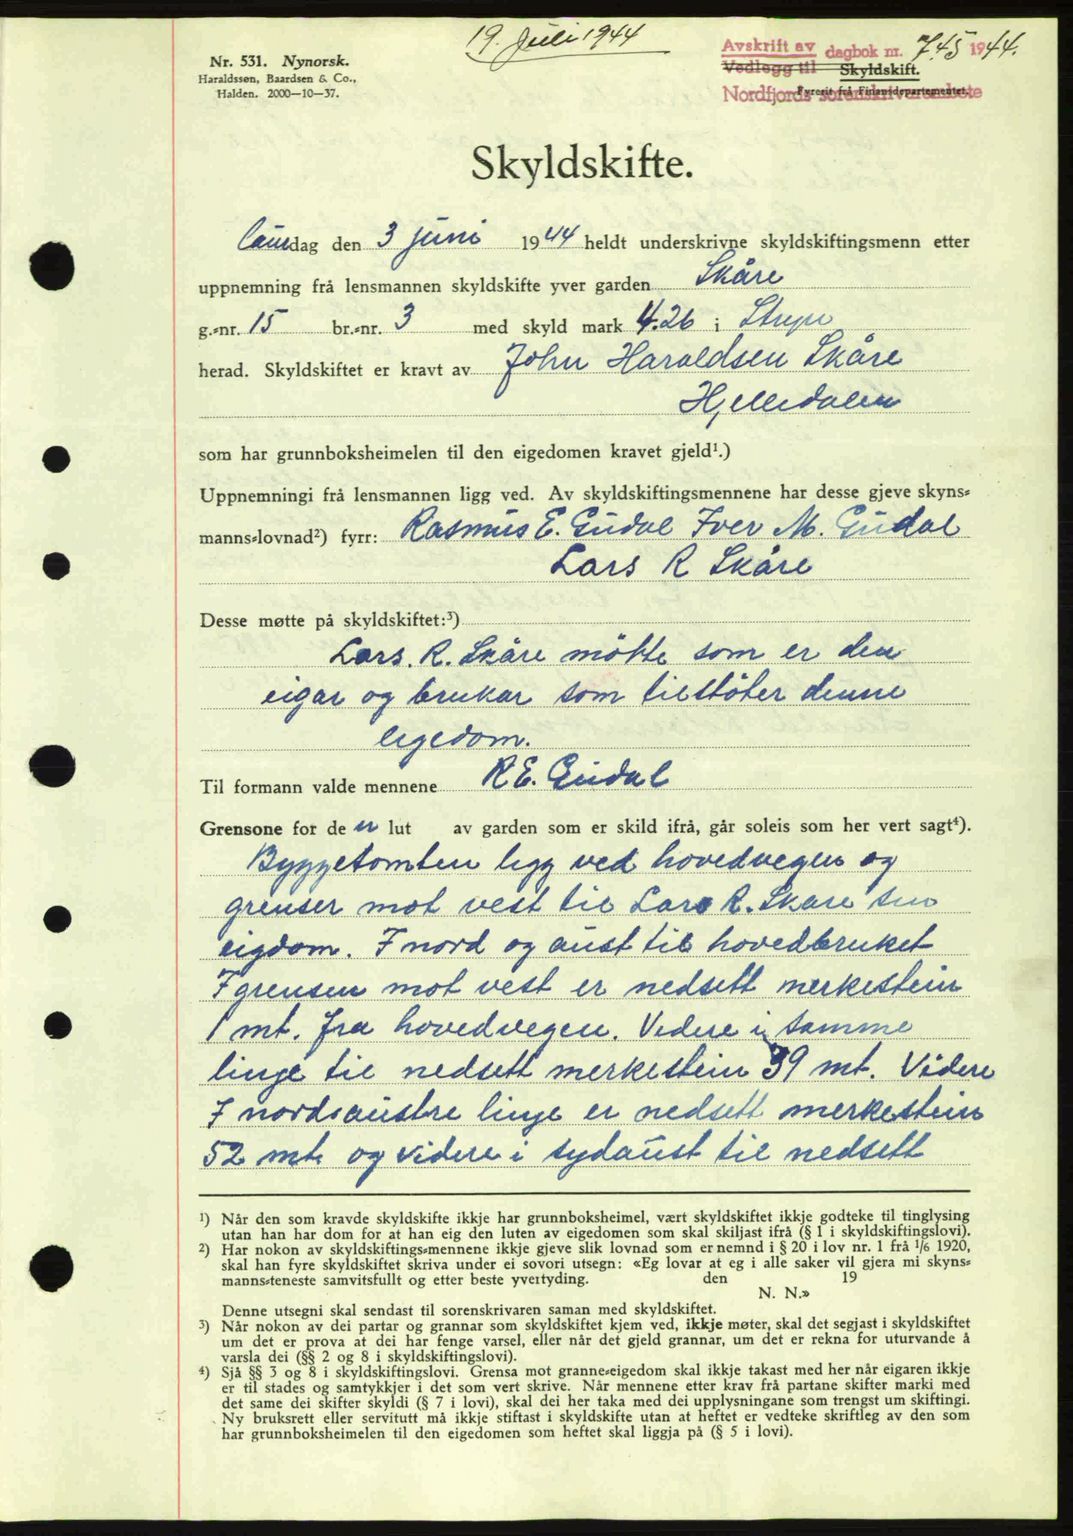 19. Juli 1944
Nr. 531. Nynorsk.
Haraldssøn, Baardsen & Co.,
Halden. 2000—10—37.
Avskrift av dagbok nr. 745 1944.
Vedlegg til Skyldskift.
Fyreset frå Finansdepartementet.
Nordfjords sorenskrivarembete
Skyldskifte.
Laurdag den 3 juni 1944 heldt underskrivne skyldskiftingsmenn etter
uppnemning frå lensmannen skyldskifte yver garden Skåre
g.-nr. 15 br.-nr. 3 med skyld mark 4.26 i Stryn
herad. Skyldskiftet er kravt av John Haraldsen Skåre
Hjelledalen
som har grunnboksheimelen til den eigedomen kravet gjeld¹.)
Uppnemningi frå lensmannen ligg ved. Av skyldskiftingsmennene har desse gjeve skyns-
manns-lovnad²) fyrr: Rasmus E. Gudal Iver M. Gudal
Lars R Skåre
Desse møtte på skyldskiftet:³)
Lars. R. Skåre mötte som er den
eigar og brukar som tilstöter denne
eigedom.
Til formann valde mennene R E. Gudal
Grensone for de n lut av garden som er skild ifrå, går soleis som her vert sagt⁴).
Byggetomten ligg ved hovedvegen og
grenser mot vest til Lars R. Skare sin
eigdom. I nord og aust til hovedbruket
I grensen mot vest er nedsett merkestein
1 mt. fra hovedvegen. Videre i samme
linge til nedsett merkestein 39 mt. Videre
I nordaustre linge er nedsett merkestein
52 mt. og videre i sydaust til nedsett
¹) Når den som kravde skyldskifte ikkje har grunnboksheimel, vært skyldskiftet ikkje godteke til tinglysing
utan han har dom for at han eig den luten av eigedomen som skal skiljast ifrå (§ 1 i skyldskiftingslovi).
²) Har nokon av skyldskiftings-mennene ikkje gjeve slik lovnad som er nemnd i § 20 i lov nr. 1 frå 1/6 1920,
skal han fyre skyldskiftet skriva under ei sovori utsegn: «Eg lovar at eg i alle saker vil gjera mi skyns-
manns-teneste samvitsfullt og etter beste yvertyding. den 19
N. N.»
Denne utsegni skal sendast til sorenskrivaren saman med skyldskiftet.
³) Når nokon av dei partar og grannar som skyldskiftet kjem ved, ikkje møter, skal det segjast i skyldskiftet
um det er prova at dei har fenge varsel, eller når det gjeld grannar, um det er rekna for uturvande å
varsla dei (§§ 2 og 8 i skyldskiftingslovi).
⁴) Sjå §§ 3 og 8 i skyldskiftingslovi. Grensa mot granne-eigedom skal ikkje takast med her når eigaren ikkje
er til stades og samtykkjer i det som vert skrive. Når mennene etter krav frå partane skifter marki med
det same dei skifter skyldi (§ 7 i lovi), skal dei her taka med dei upplysningane som trengst um skiftingi.
Ny bruksrett eller servitutt må ikkje stiftast i skyldskifte utan at heftet er vedteke skriftleg av den som
har grunnboksheimelen til den eigedomen som heftet skal liggja på (§ 5 i lovi).